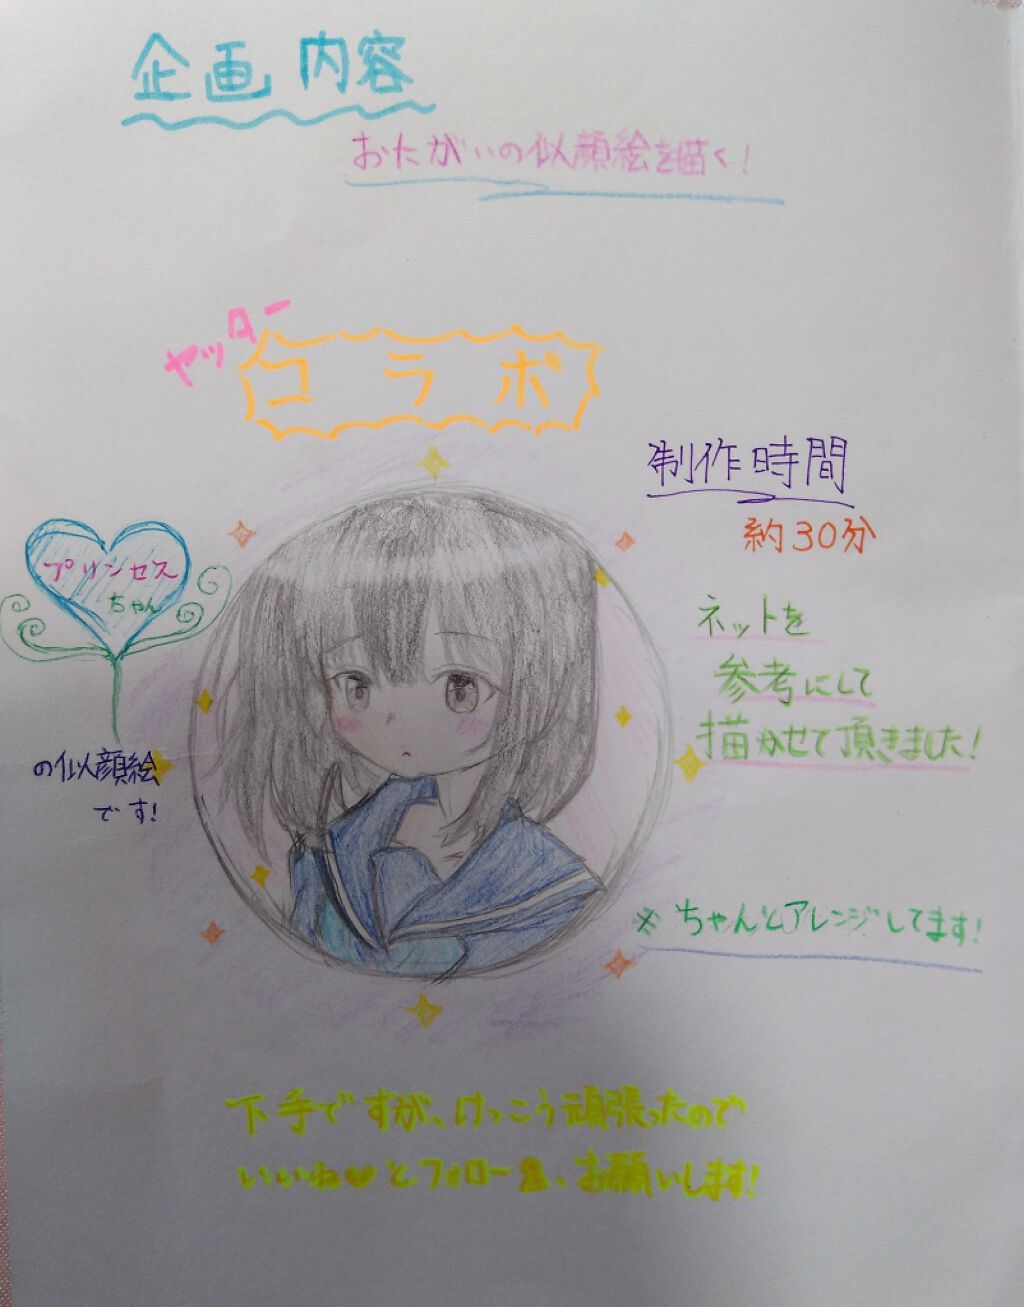 企画内容
おたがいの似顔絵を描く!
ヤッター
コラボ
制作時間
約30分
プリンセス
ちゃん
の似顔絵
です!
ネットを
参考にして
描かせて頂きました!
※ちゃんとアレンジしてます!
下手ですが、けっこう頑張ったので
いいね♥とフォロー👤、お願いします!